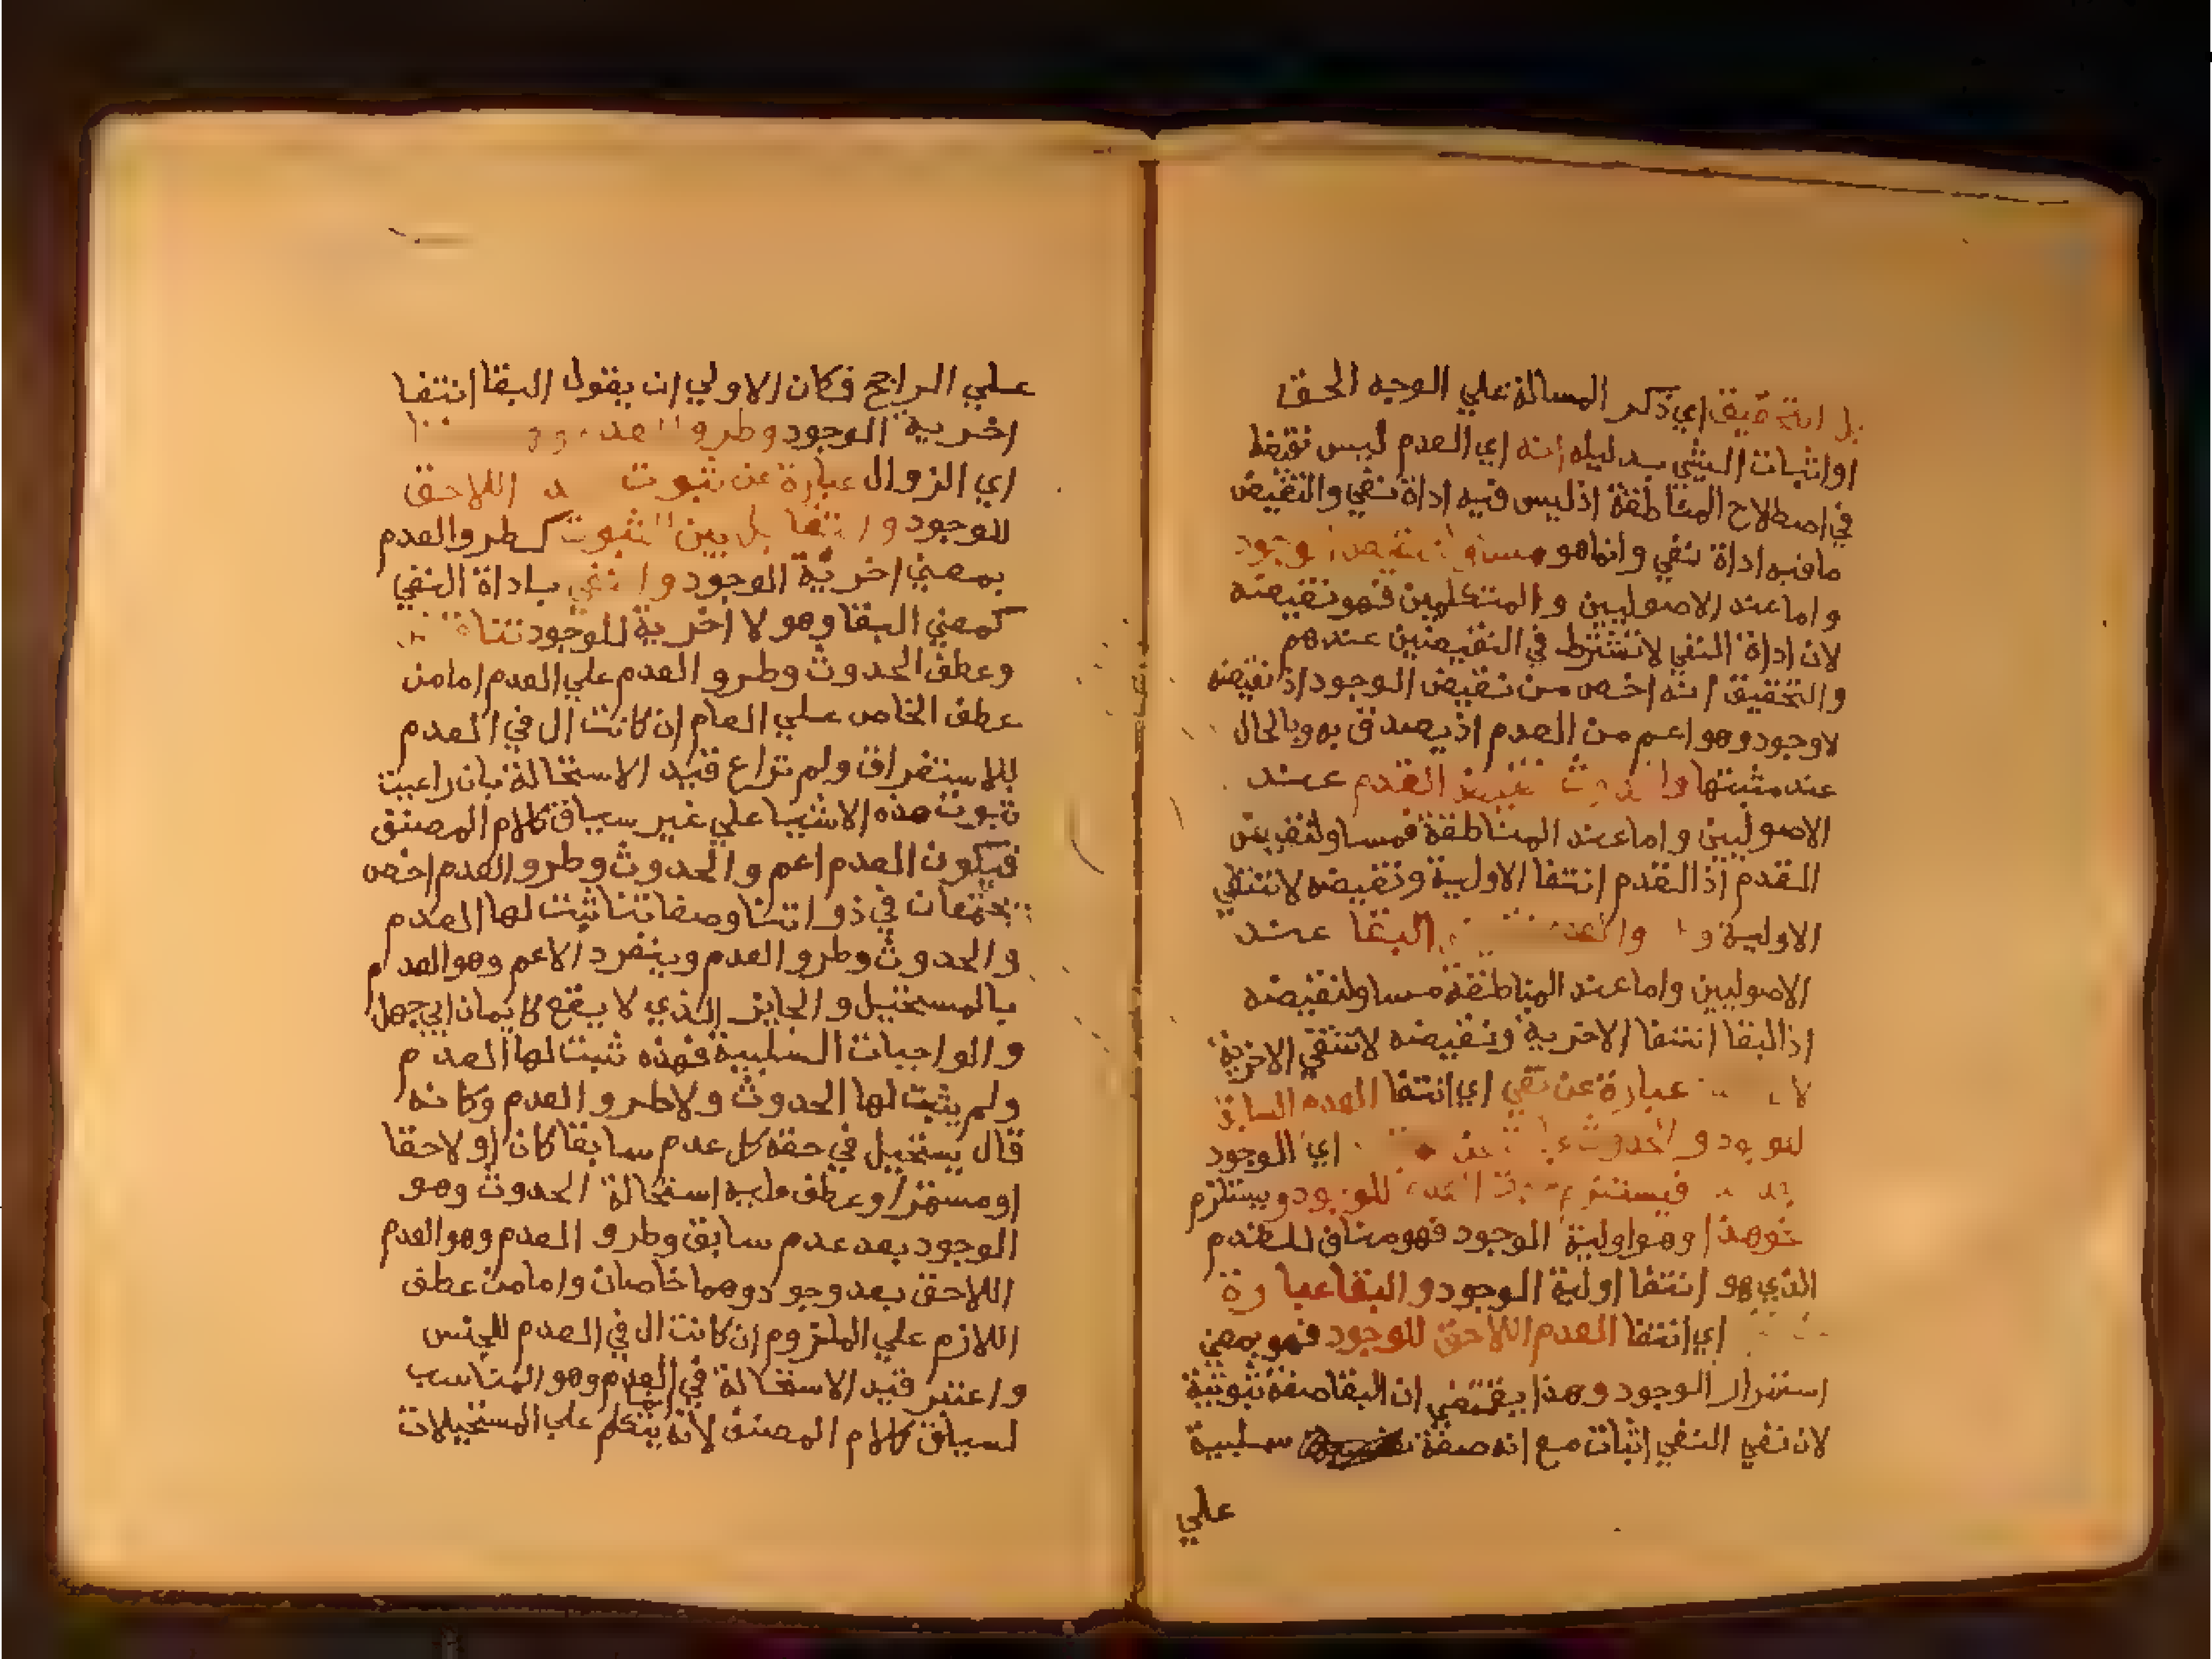 بل التحقيق اي ذكر المسالة علي الوجه الحق
او اثبات الشي بدليله انه اي العدم ليس نقيضا
في اصطلاح المناطقة اذ ليس فيه اداة نفي والنقيض
ما فيه اداة نفي وانما هو مساو لنقيض الوجود
واما عند الاصوليين والمتكلمين فهو نقيضه
لان اداة النفي لا تشترط في النقيضين عندهم
والتحقيق انه اخص من نقيض الوجود اذ نقيضه
لا وجود وهو اعم من العدم اذ يصدق به وبالحال
عند مثبتها والحدوث نقيض القدم عند
الاصوليين واما عند المناطقة فمساو لنقيض
القدم اذ القدم انتفا الاولية ونقيضه لا تنتفي
الاولية والبقا عند
الاصوليين واما عند المناطقة مساو لنقيضه
اذ البقا انتفا الاخرية ونقيضه لا تنتفي الاخرية
لا عبارة عن نفي اي انتفا العدم السابق
للوجود والحدوث اي الوجود
فيستلزم للوجود ويستلزم
نحو هذا وهو اولية الوجود فهو مناف للقدم
الذي هو انتفا اولية الوجود والبقا عبارة
اي انتفا العدم اللاحق للوجود فهو بمعني
استمرار الوجود وهذا يقتضي ان البقا صفة ثبوتية
لان نفي النفي اثبات مع انه صفة سلبية
علي
علي الراجح فكان الاولي ان يقول البقا انتفا
اخرية الوجود وطرو العدم
اي الزوال عبارة عن ثبوت اللاحق
للوجود بين الثبوت كطرو العدم
بمعني اخرية الوجود والنفي باداة النفي
كمعني البقا وهو لا اخرية للوجود
وعطف الحدوث وطرو العدم علي العدم اما من
عطف الخاص علي العام ان كانت ال في العدم
للاستغراق ولم تراع قيد الاستحالة بان راعيت
ثبوت هذه الاشيا علي غير سياق كلام المصنف
فيكون العدم اعم والحدوث وطرو العدم اخص
يجتمعان في ذواتنا وصفاتنا ثبت لها العدم
والحدوث وطرو العدم وينفرد الاعم وهو العدم
بالمستحيل والجايز الذي لا يقع كايمان ابي جهل
والواجبات السلبية فهذه ثبت لها العدم
ولم يثبت لها الحدوث ولا طرو العدم وكانه
قال يستحيل في حقه كل عدم سابقا كان او لاحقا
او مستمرا وعطف عليه استحالة الحدوث وهو
الوجود بعد عدم سابق وطرو العدم وهو العدم
اللاحق بعد وجود وهما خاصان واما من عطف
اللازم علي الملزوم ان كانت ال في العدم للجنس
واعتبر قيد الاستحالة في العدم وهو المناسب
لسياق كلام المصنف لانه يتكلم علي المستحيلات